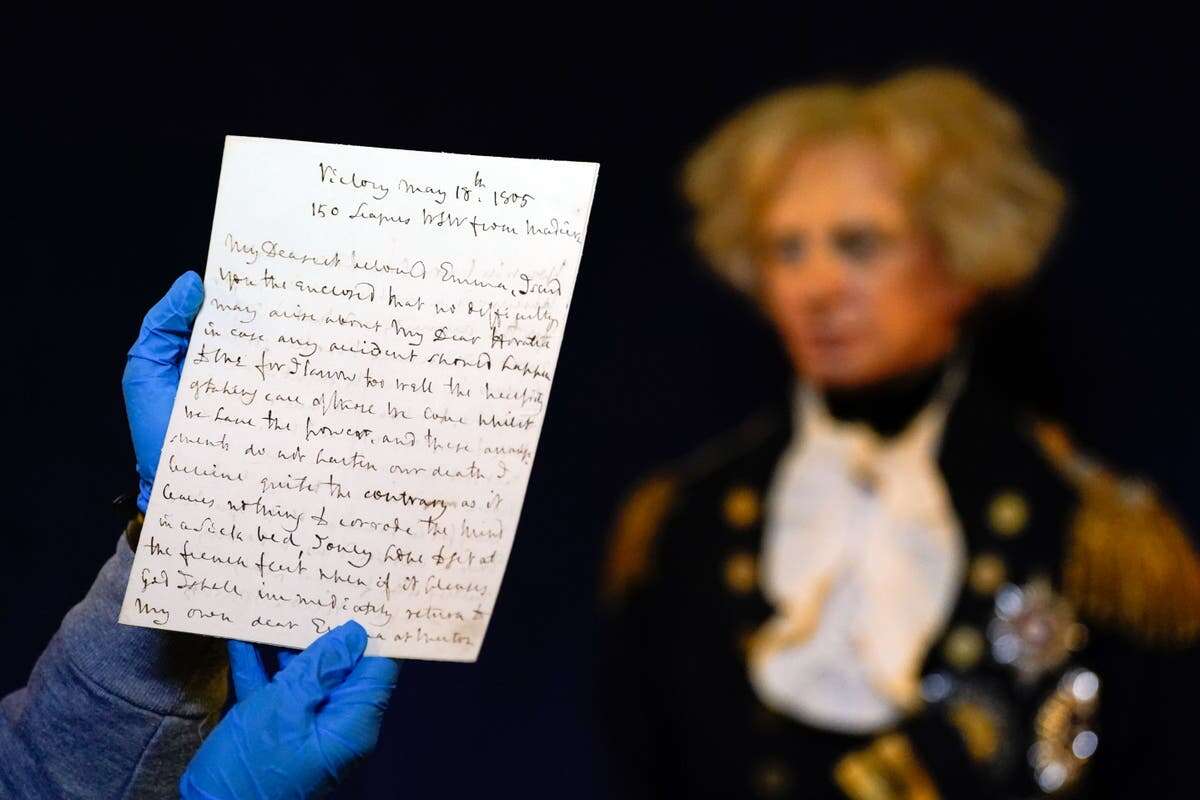 Victory May 18th. 1805
150 Leagues WSW from Madeira
My Dearest beloved Emma, I send
you the enclosed that no difficulty
may arise about My Dear Horatia
in case any accident should happen
to me for I know too well the necessity
of taking care of those we love whilst
we have the power, and these arrange
ments do not hasten our death, I
believe quite the contrary as it
leaves nothing to corrode the mind
in a sick bed, I only hope to get at
the french fleet when if it pleases
God I shall immediately return to
My own dear Emma at Merton